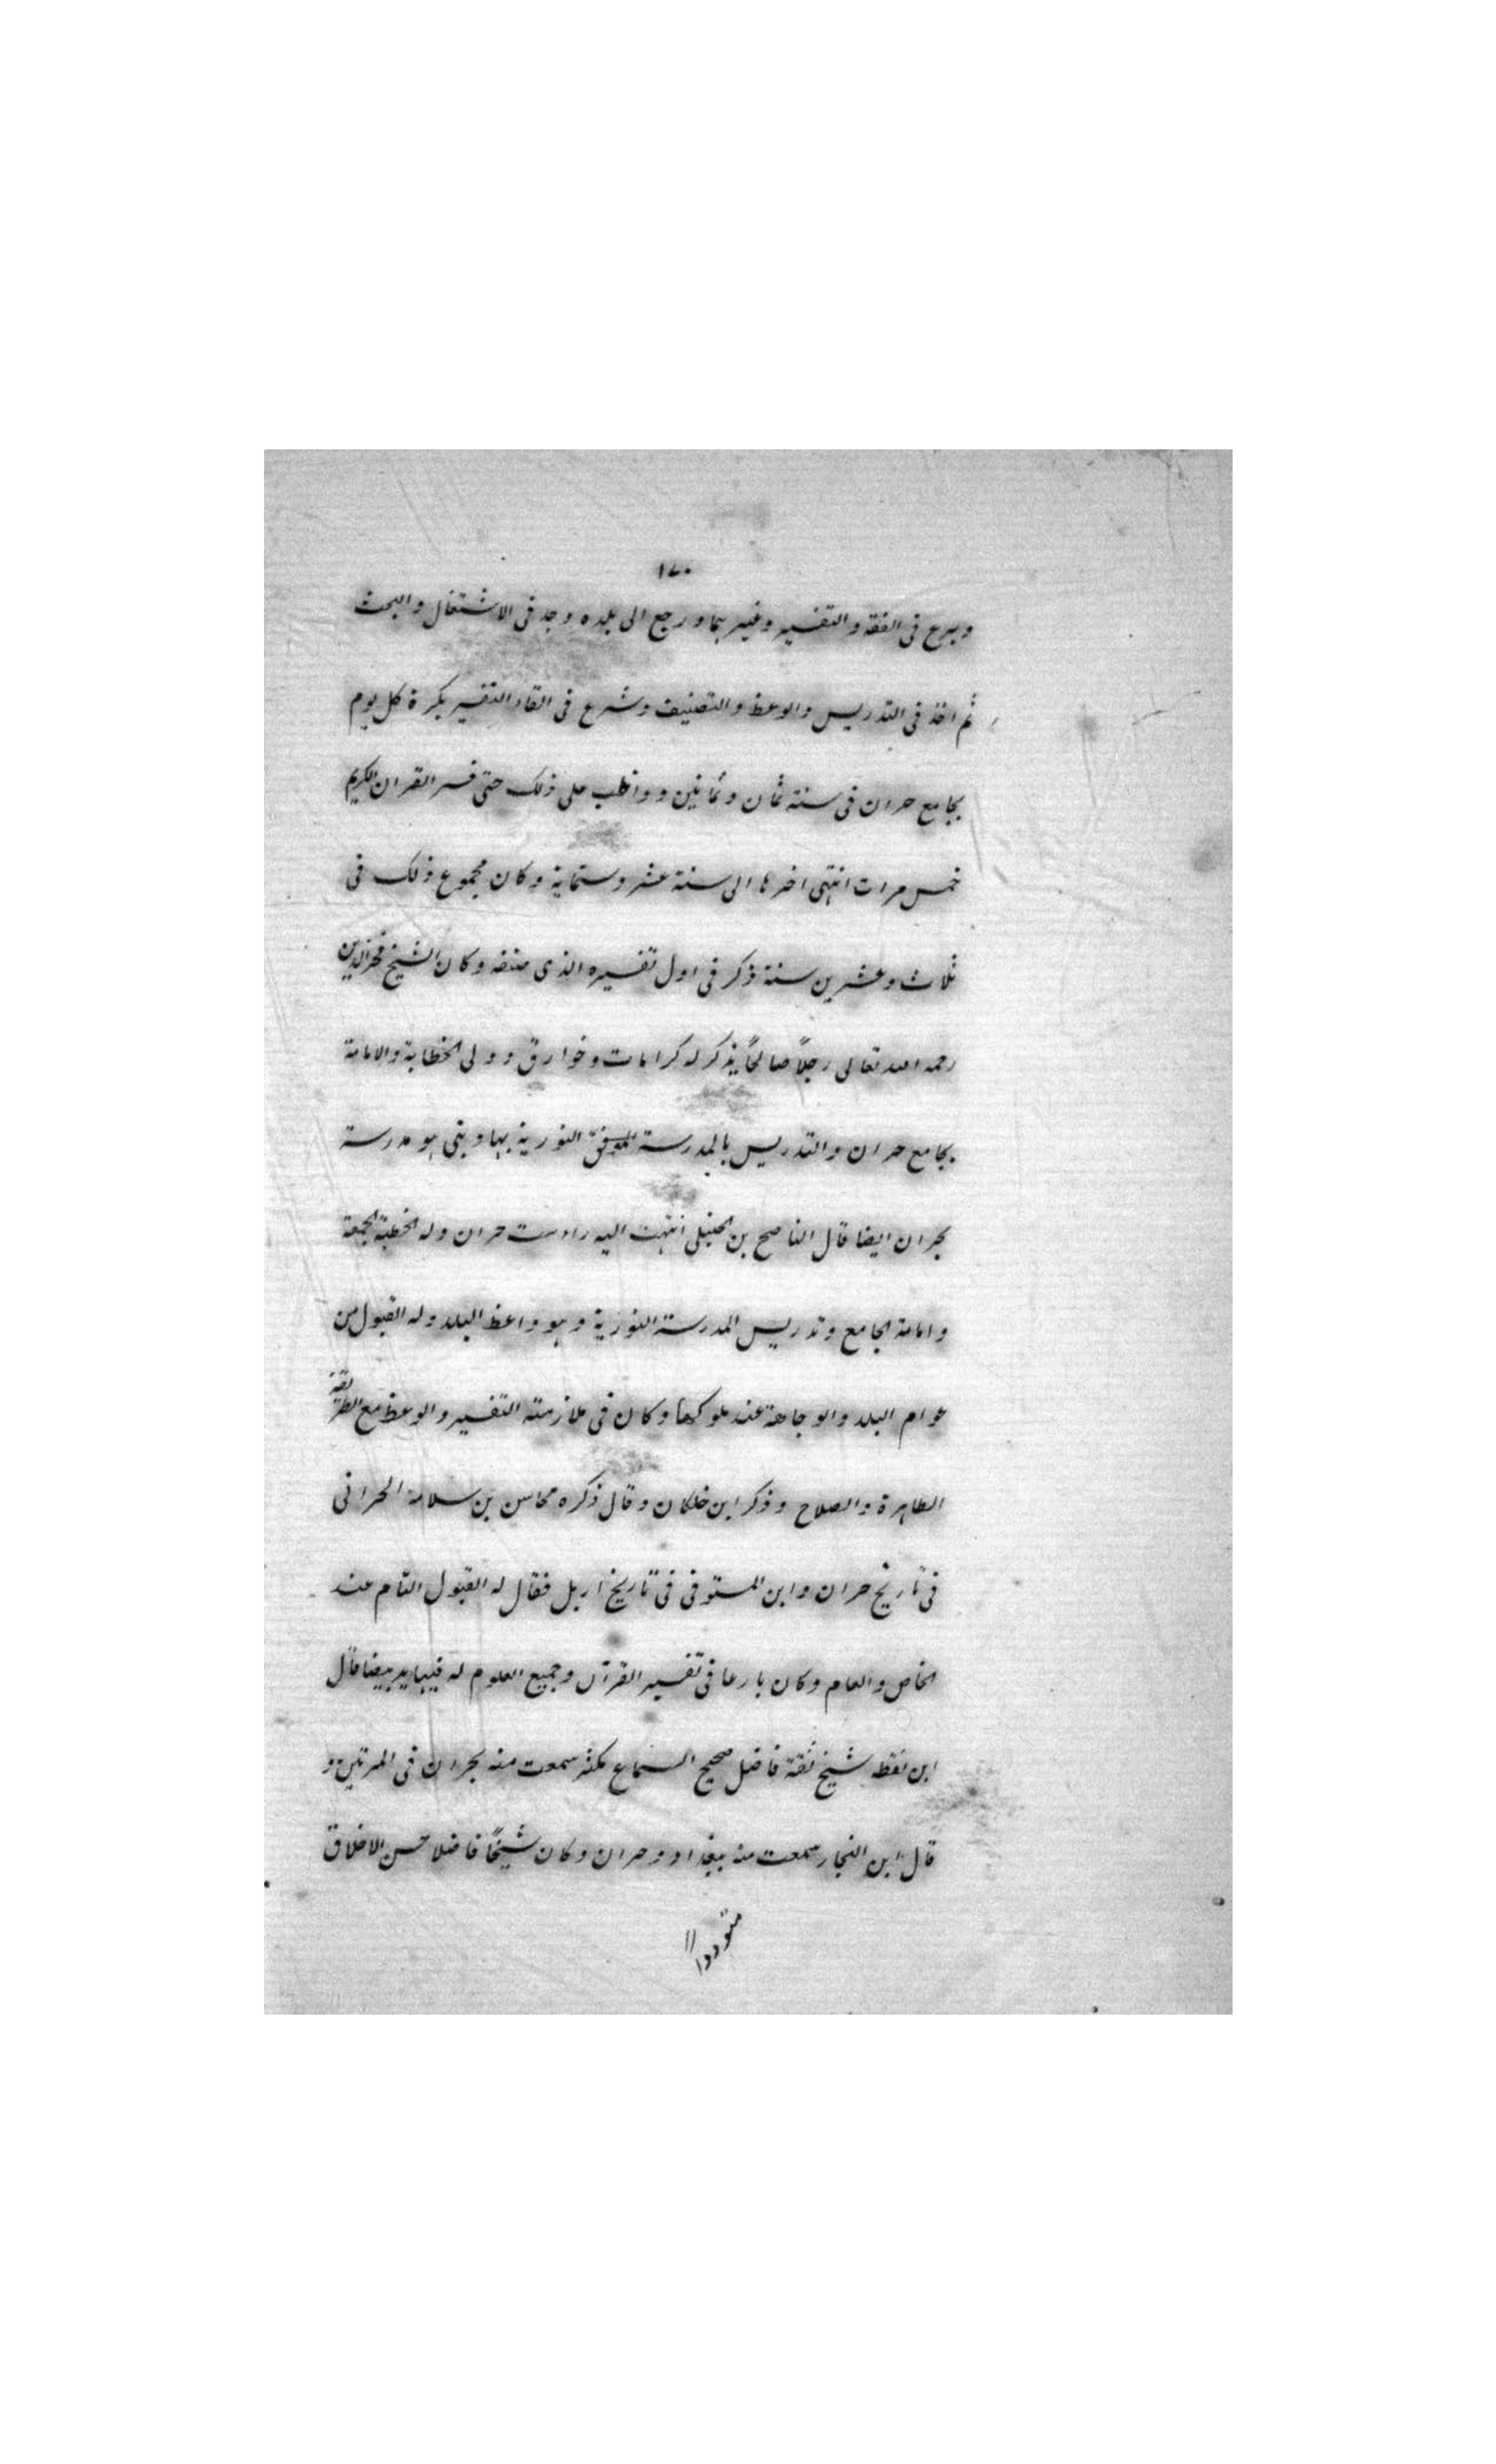 ١٧٠
وبرع فى الفقه والتفسير وغيرهما ورجع الى بلده وجد فى الاشتغال والبحث
ثم اخذ فى التدريس والوعظ والتصنيف وشرع فى القاء التفسير بكرة كل يوم
بجامع حران فى سنة ثمان وثمانين وواظب على ذلك حتى فسر القران الكريم
خمس مرات انتهى اخرها الى سنة عشر وستماية وكان مجموع ذلك فى
ثلاث وعشرين سنة ذكر فى اول تفسيره الذى صنفه وكان الشيخ فخرالدين
رحمه الله تعالى رجلاً صالحاً يذكر له كرامات وخوارق وولى الخطابة والامامة
بجامع حران والتدريس بالمدرسة النورية بها وبنى هو مدرسة
بحران ايضا قال الناصح بن الحنبلى انتهت اليه رياست حران وله خطبة الجمعة
وامامة الجامع وتدريس المدرسة النورية وهو واعظ البلد وله القبول من
عوام البلد والوجاهة عند ملوكها وكان فى ملازمته التفسير والوعظ مع الطريقة
الطاهرة والصلاح وذكر ابن خلكان وقال ذكره محاسن بن سلامة الحرانى
فى تاريخ حران وابن المستوفى فى تاريخ اربل فقال له القبول التام عند
الخاص والعام وكان بارعا فى تفسير القرآن وجميع العلوم له فيها يد بيضا قال
ابن نقطه شيخ ثقة فاضل صحيح السماع مكثر سمعت منه بحران فى المرتين و
قال ابن النجار سمعت منه ببغداد وحران وكان شيخاً فاضلا حسن الاخلاق
متوددا